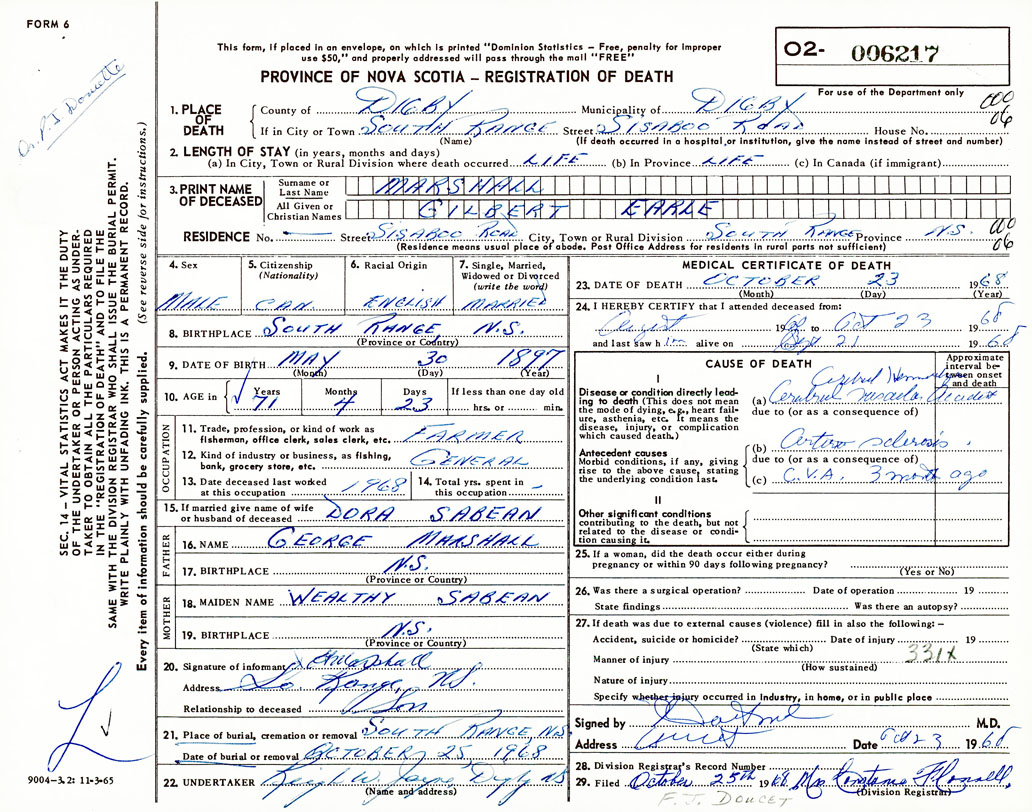 FORM 6
This form, if placed in an envelope, on which is printed "Dominion Statistics – Free, penalty for improper
use $50," and properly addressed will pass through the mail "FREE"
O2- 006217
PROVINCE OF NOVA SCOTIA – REGISTRATION OF DEATH
For use of the Department only
Dr. P. J. Doucette
1. PLACE OF DEATH
County of DIGBY Municipality of DIGBY
If in City or Town SOUTH RANGE Street SISABOO ROAD House No.
(Name) (If death occurred in a hospital, or institution, give the name instead of street and number)
000
06
2. LENGTH OF STAY (in years, months and days)
(a) In City, Town or Rural Division where death occurred LIFE (b) In Province LIFE (c) In Canada (if immigrant)
3. PRINT NAME OF DECEASED
Surname or Last Name MARSHALL
All Given or Christian Names GILBERT EARLE
RESIDENCE No. — Street SISABOO ROAD City, Town or Rural Division SOUTH RANGE Province N.S.
(Residence means usual place of abode. Post Office Address for residents in rural parts not sufficient)
000
06
4. Sex
MALE
5. Citizenship
(Nationality)
CAN.
6. Racial Origin
ENGLISH
7. Single, Married,
Widowed or Divorced
(write the word)
MARRIED
8. BIRTHPLACE SOUTH RANGE N.S.
(Province or Country)
9. DATE OF BIRTH MAY 30 1897
(Month) (Day) (Year)
10. AGE in Years Months Days If less than one day old
71 4 23 hrs. or min.
OCCUPATION
11. Trade, profession, or kind of work as
fisherman, office clerk, sales clerk, etc. FARMER
12. Kind of industry or business, as fishing,
bank, grocery store, etc. GENERAL
13. Date deceased last worked
at this occupation 1968
14. Total yrs. spent in
this occupation –
15. If married give name of wife
or husband of deceased DORA SABEAN
FATHER
16. NAME GEORGE MARSHALL
17. BIRTHPLACE N.S.
(Province or Country)
MOTHER
18. MAIDEN NAME WEALTHY SABEAN
19. BIRTHPLACE N.S.
(Province or Country)
20. Signature of informant Marshall
Address So. Range, N.S.
Relationship to deceased Son
21. Place of burial, cremation or removal SOUTH RANGE, N.S.
Date of burial or removal OCTOBER 25, 1968
22. UNDERTAKER W. Jayne, Digby NS
(Name and address)
MEDICAL CERTIFICATE OF DEATH
23. DATE OF DEATH OCTOBER 23 1968
(Month) (Day) (Year)
24. I HEREBY CERTIFY that I attended deceased from:
August 19 to Oct 23 1968
and last saw him alive on Sept 21 1968
CAUSE OF DEATH
Approximate
interval be-
tween onset
and death
I
Disease or condition directly lead-
ing to death (This does not mean
the mode of dying, e.g., heart fail-
ure, asthenia, etc. It means the
disease, injury, or complication
which caused death.)
(a) Cerebral Vascular Accident
due to (or as a consequence of)
Antecedent causes
Morbid conditions, if any, giving
rise to the above cause, stating
the underlying condition last.
(b) Arterio sclerosis
due to (or as a consequence of)
(c) C.V.A. 3 month ago
II
Other significant conditions
contributing to the death, but not
related to the disease or condi-
tion causing it.
25. If a woman, did the death occur either during
pregnancy or within 90 days following pregnancy?
(Yes or No)
26. Was there a surgical operation? Date of operation 19
State findings Was there an autopsy?
27. If death was due to external causes (violence) fill in also the following: –
Accident, suicide or homicide? Date of injury 19
(State which)
331X
Manner of injury
(How sustained)
Nature of injury
Specify whether injury occurred in Industry, in home, or in public place
Signed by M.D.
Address Date Oct 23 1968
28. Division Registrar's Record Number
29. Filed October 25th 1968 Mrs.
(Division Registrar)
F. J. DOUCET
SEC. 14 – VITAL STATISTICS ACT MAKES IT THE DUTY
OF THE UNDERTAKER OR PERSON ACTING AS UNDER-
TAKER TO OBTAIN ALL THE PARTICULARS REQUIRED
IN THE "REGISTRATION OF DEATH" AND TO FILE THE
SAME WITH THE DIVISION REGISTRAR WHO SHALL ISSUE THE BURIAL PERMIT.
WRITE PLAINLY WITH UNFADING INK. THIS IS A PERMANENT RECORD.
Every item of information should be carefully supplied. (See reverse side for instructions.)
9004-3.2: 11-3-65